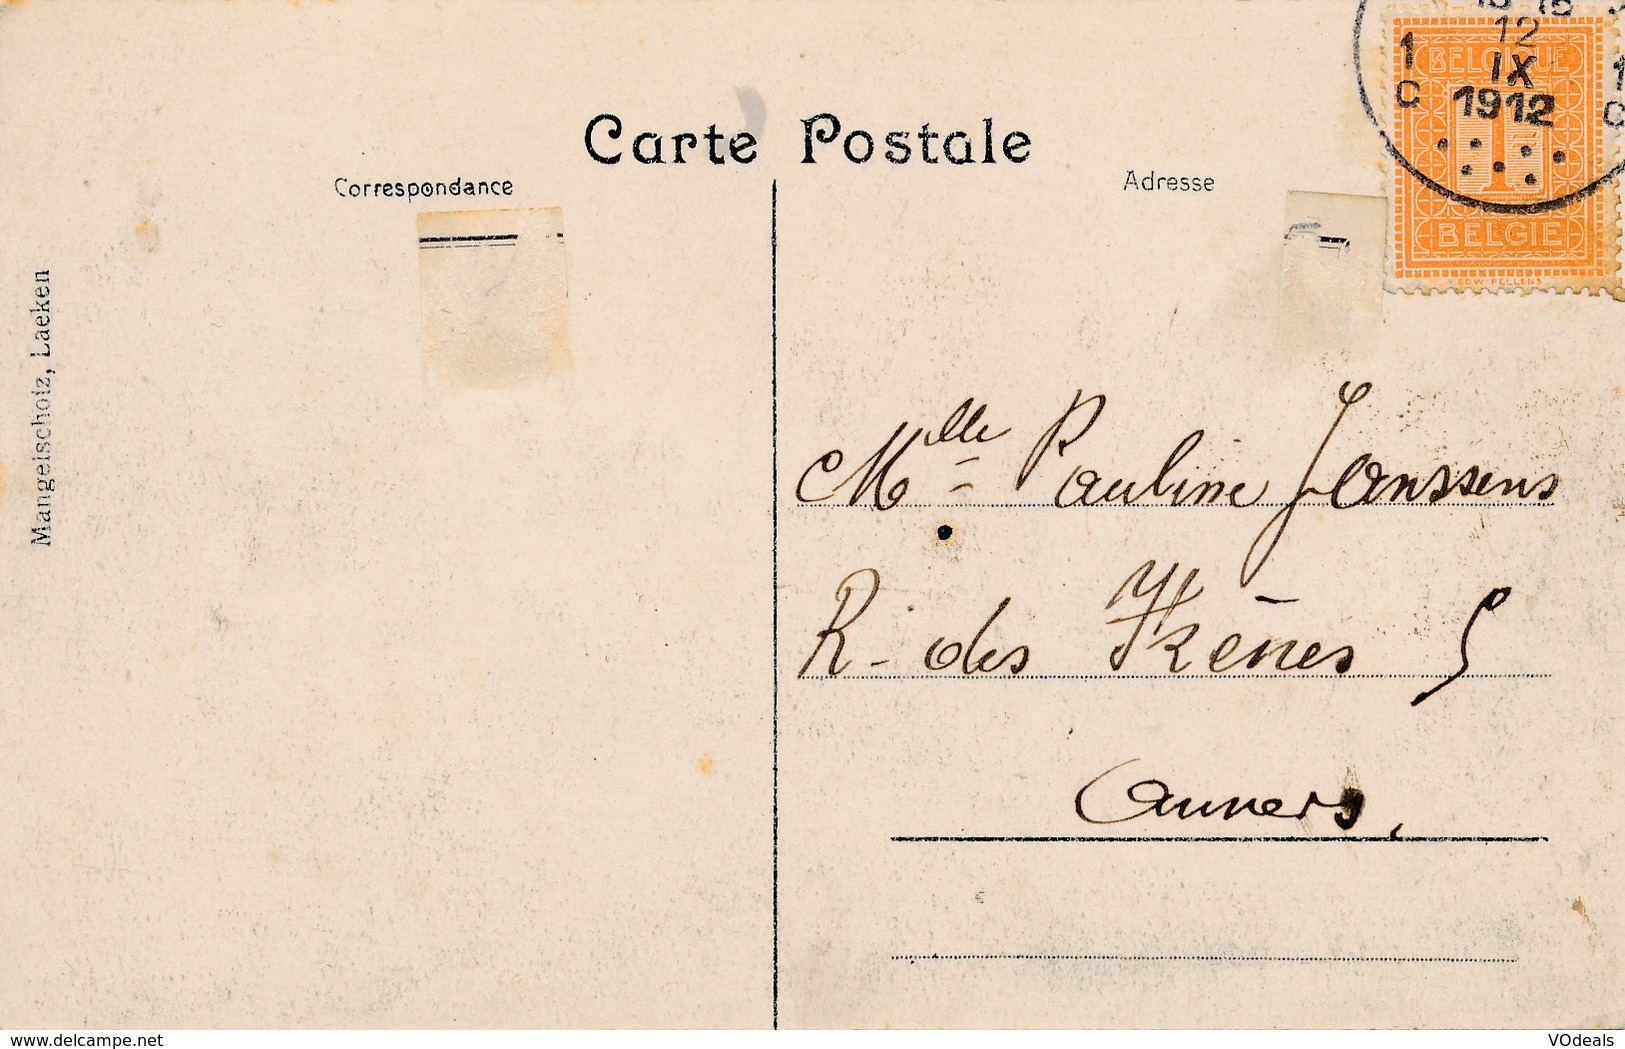 Carte Postale
Correspondance
Adresse
12
IX
1912
1
C
1
C
BELGIQUE
1
BELGIE
EDW PELLENS
Mangelschotz, Laeken
Mlle Pauline Janssens
R. des 5
Anvers,
www.delcampe.net
VOdeals